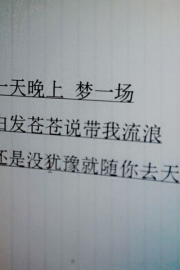 一天晚上 梦一场
白发苍苍说带我流浪
还是没犹豫就随你去天